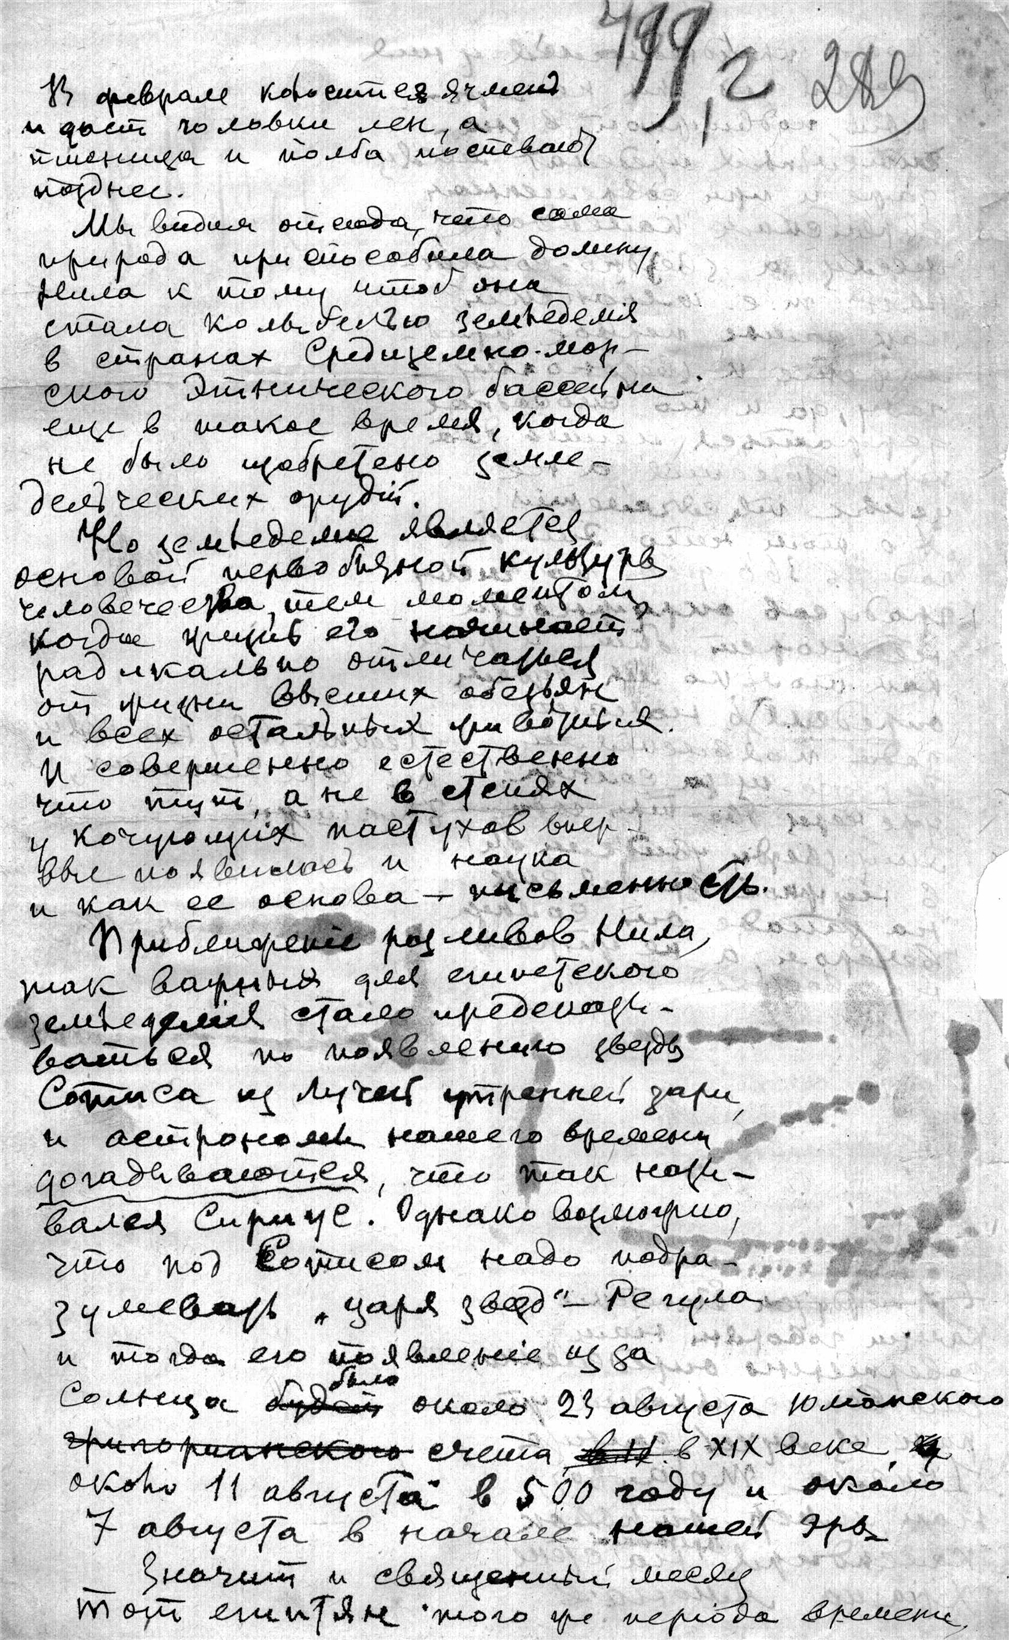 499, г 289
В феврале косится ячмень
и дает головки лен, а
пшеница и полба поспевают
позднее.
Мы видим отсюда, что сама
природа приспособила долину
Нила к тому чтоб она
стала колыбелью земледелия
в странах Средиземно-мор-
ского Этнического бассейна
еще в такое время, когда
не было изобретено земле-
дельческих орудий.
Но земледелие является
основой первобытной культуры
человечества, тем моментом,
когда жизнь его начинает
радикально отличаться
от жизни высших обезьян
и всех остальных животных.
И совершенно естественно
что тут, а не в степях
у кочующих пастухов впер-
вые появилась и наука
и как ее основа — письменность.
Приближение розливов Нила,
так важных для египетского
земледелия стало предсказы-
ваться по появлению звезды
Сотиса из лучей утренней зари,
и астрономы нашего времени
догадываются, что так назы-
вался Сириус. Однако возможно,
что под Сотисом надо подра-
зумевать „царя звезд“ — Регула
и тогда его появление из за
было
Солнца будет около 23 августа Юлианского
григорианского счета в XIX веке,
около 11 августа в 500 году и около
7 августа в начале нашей эры.
Значит и священный месяц
Тот египтян того же периода времени.